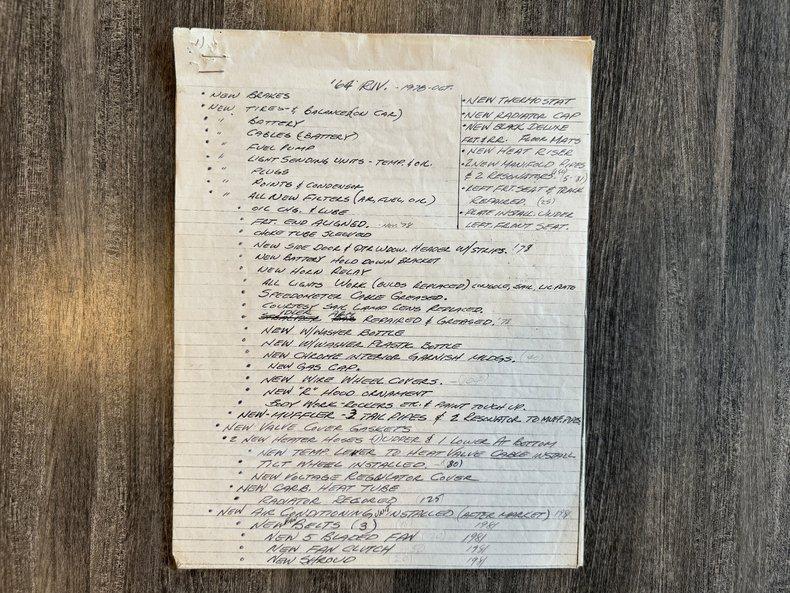 '64 RIV. - 1978-OCT.
• NEW BRAKES
• NEW TIRES & BALANCE (ON CAR)
• " BATTERY
• " CABLES (BATTERY)
• " FUEL PUMP
• " LIGHT SENDING UNITS - TEMP. & OIL
• " PLUGS
• " POINTS & CONDENSOR
• " ALL NEW FILTERS (AIR, FUEL, OIL)
• OIL CHG. & LUBE
• FRT. END ALIGNED. - NOV. '78
• CHOKE TUBE SLEEVED
• NEW SIDE DOOR & QTR. WDOW. HEADER W/STRIPS. '78
• NEW BATTERY HOLD DOWN BRACKET
• NEW HORN RELAY
• ALL LIGHTS WORK (BULBS REPLACED) CONSOLE, SAIL, LIC PLATE
• SPEEDOMETER CABLE GREASED.
• COURTESY SAIL LAMP LENS REPLACED.
• IDLER REPAIRED & GREASED.
• NEW W/WASHER BOTTLE
• NEW W/WASHER PLASTIC BOTTLE
• NEW CHROME INTERIOR GARNISH MLDGS.
• NEW GAS CAP.
• NEW WIRE WHEEL COVERS.
• NEW "R" HOOD ORNAMENT
• BODY WORK-ROCKERS ETC. & PAINT TOUCH UP.
• NEW-MUFFLER - 2 TAIL PIPES & 2 RESONATOR TO MUFF. PIPES
• NEW VALVE COVER GASKETS
• 2 NEW HEATER HOSES 1) UPPER & 1 LOWER AT BOTTOM
• NEW TEMP. LEVER TO HEAT VALVE CABLE INSTALL
• TILT WHEEL INSTALLED - '80)
• NEW VOLTAGE REGULATOR COVER
• NEW CARB. HEAT TUBE
• RADIATOR RECORED 125
• NEW AIR CONDITIONING UNIT INSTALLED (AFTER MARKET) 1981
• NEW BELTS (3) 1981
• NEW 5 BLADED FAN 1981
• NEW FAN CLUTCH 1981
• NEW SHROUD 1981
• NEW THERMOSTAT
• NEW RADIATOR CAP
• NEW BLACK DELUXE
FRT. & RR. FLOOR MATS
• NEW HEAT RISER
• 2 NEW MANIFOLD PIPES
& 2 RESONATORS 5-'81)
• LEFT FRT. SEAT & TRACK
REPAIRED. (25)
• PLATE INSTALL UNDER
LEFT FRONT SEAT.